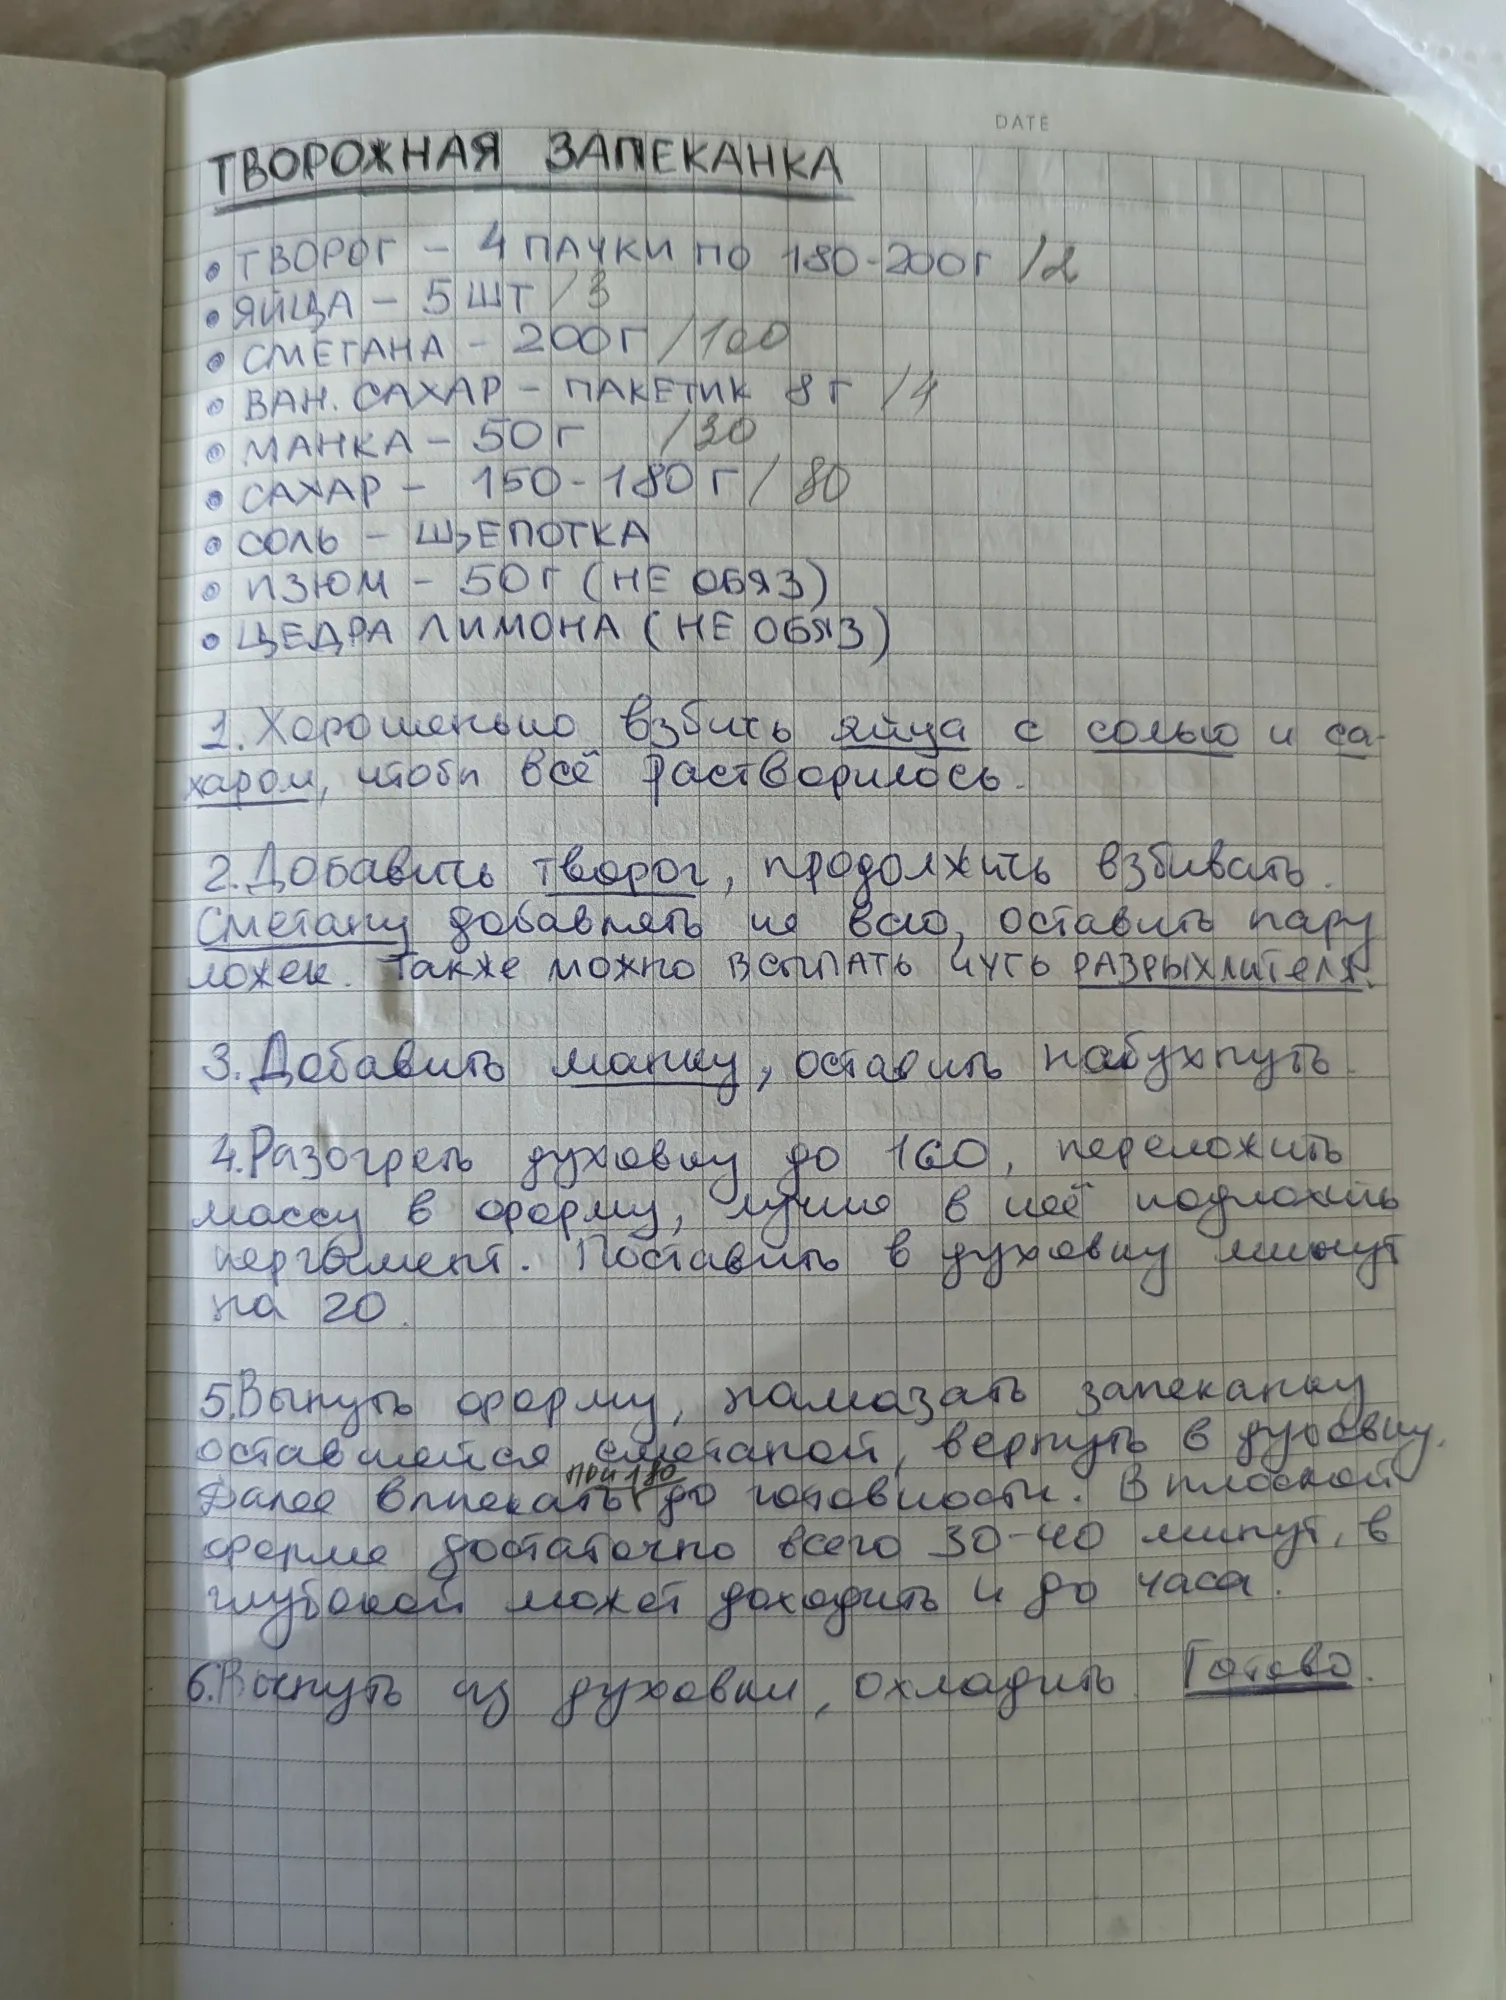 DATE
ТВОРОЖНАЯ ЗАПЕКАНКА
• ТВОРОГ – 4 ПАЧКИ ПО 180-200Г /2
• ЯЙЦА – 5 ШТ /3
• СМЕТАНА – 200Г /100
• ВАН. САХАР – ПАКЕТИК 8 Г /4
• МАНКА – 50 Г /30
• САХАР – 150-180 Г / 80
• СОЛЬ – ЩЕПОТКА
• ИЗЮМ – 50 Г (НЕ ОБЯЗ)
• ЦЕДРА ЛИМОНА (НЕ ОБЯЗ)
1. Хорошенько взбить яйца с солью и са-
харом, чтобы всё растворилось.
2. Добавить творог, продолжить взбивать.
Сметану добавлять не всю, оставить пару
ложек. Также можно всыпать чуть РАЗРЫХЛИТЕЛЯ.
3. Добавить манку, оставить набухнуть.
4. Разогреть духовку до 160, переложить
массу в форму, лучше в неё подложить
пергамент. Поставить в духовку минут
на 20.
5. Вынуть форму, намазать запеканку
оставшейся сметаной, вернуть в духовку.
при 180
Далее выпекать до готовности. В плоской
форме достаточно всего 30-40 минут, в
глубокой может доходить и до часа.
6. Вынуть из духовки, охладить. Готово.